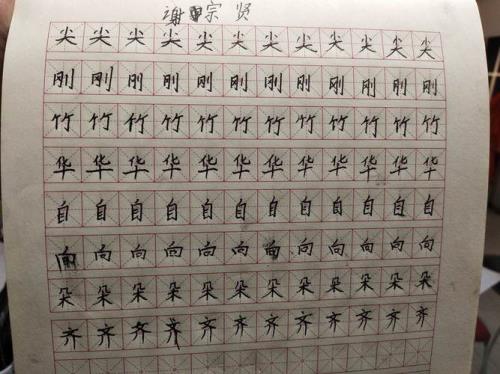 谢宗贤
尖尖尖尖尖尖尖尖尖尖尖尖
刚刚刚刚刚刚刚刚刚刚刚刚
竹竹竹竹竹竹竹竹竹竹竹竹
华华华华华华华华华华华华
自自自自自自自自自自自自
向向向向向向向向向向向向
朵朵朵朵朵朵朵朵朵朵朵朵
齐齐齐齐齐齐齐齐齐齐齐齐